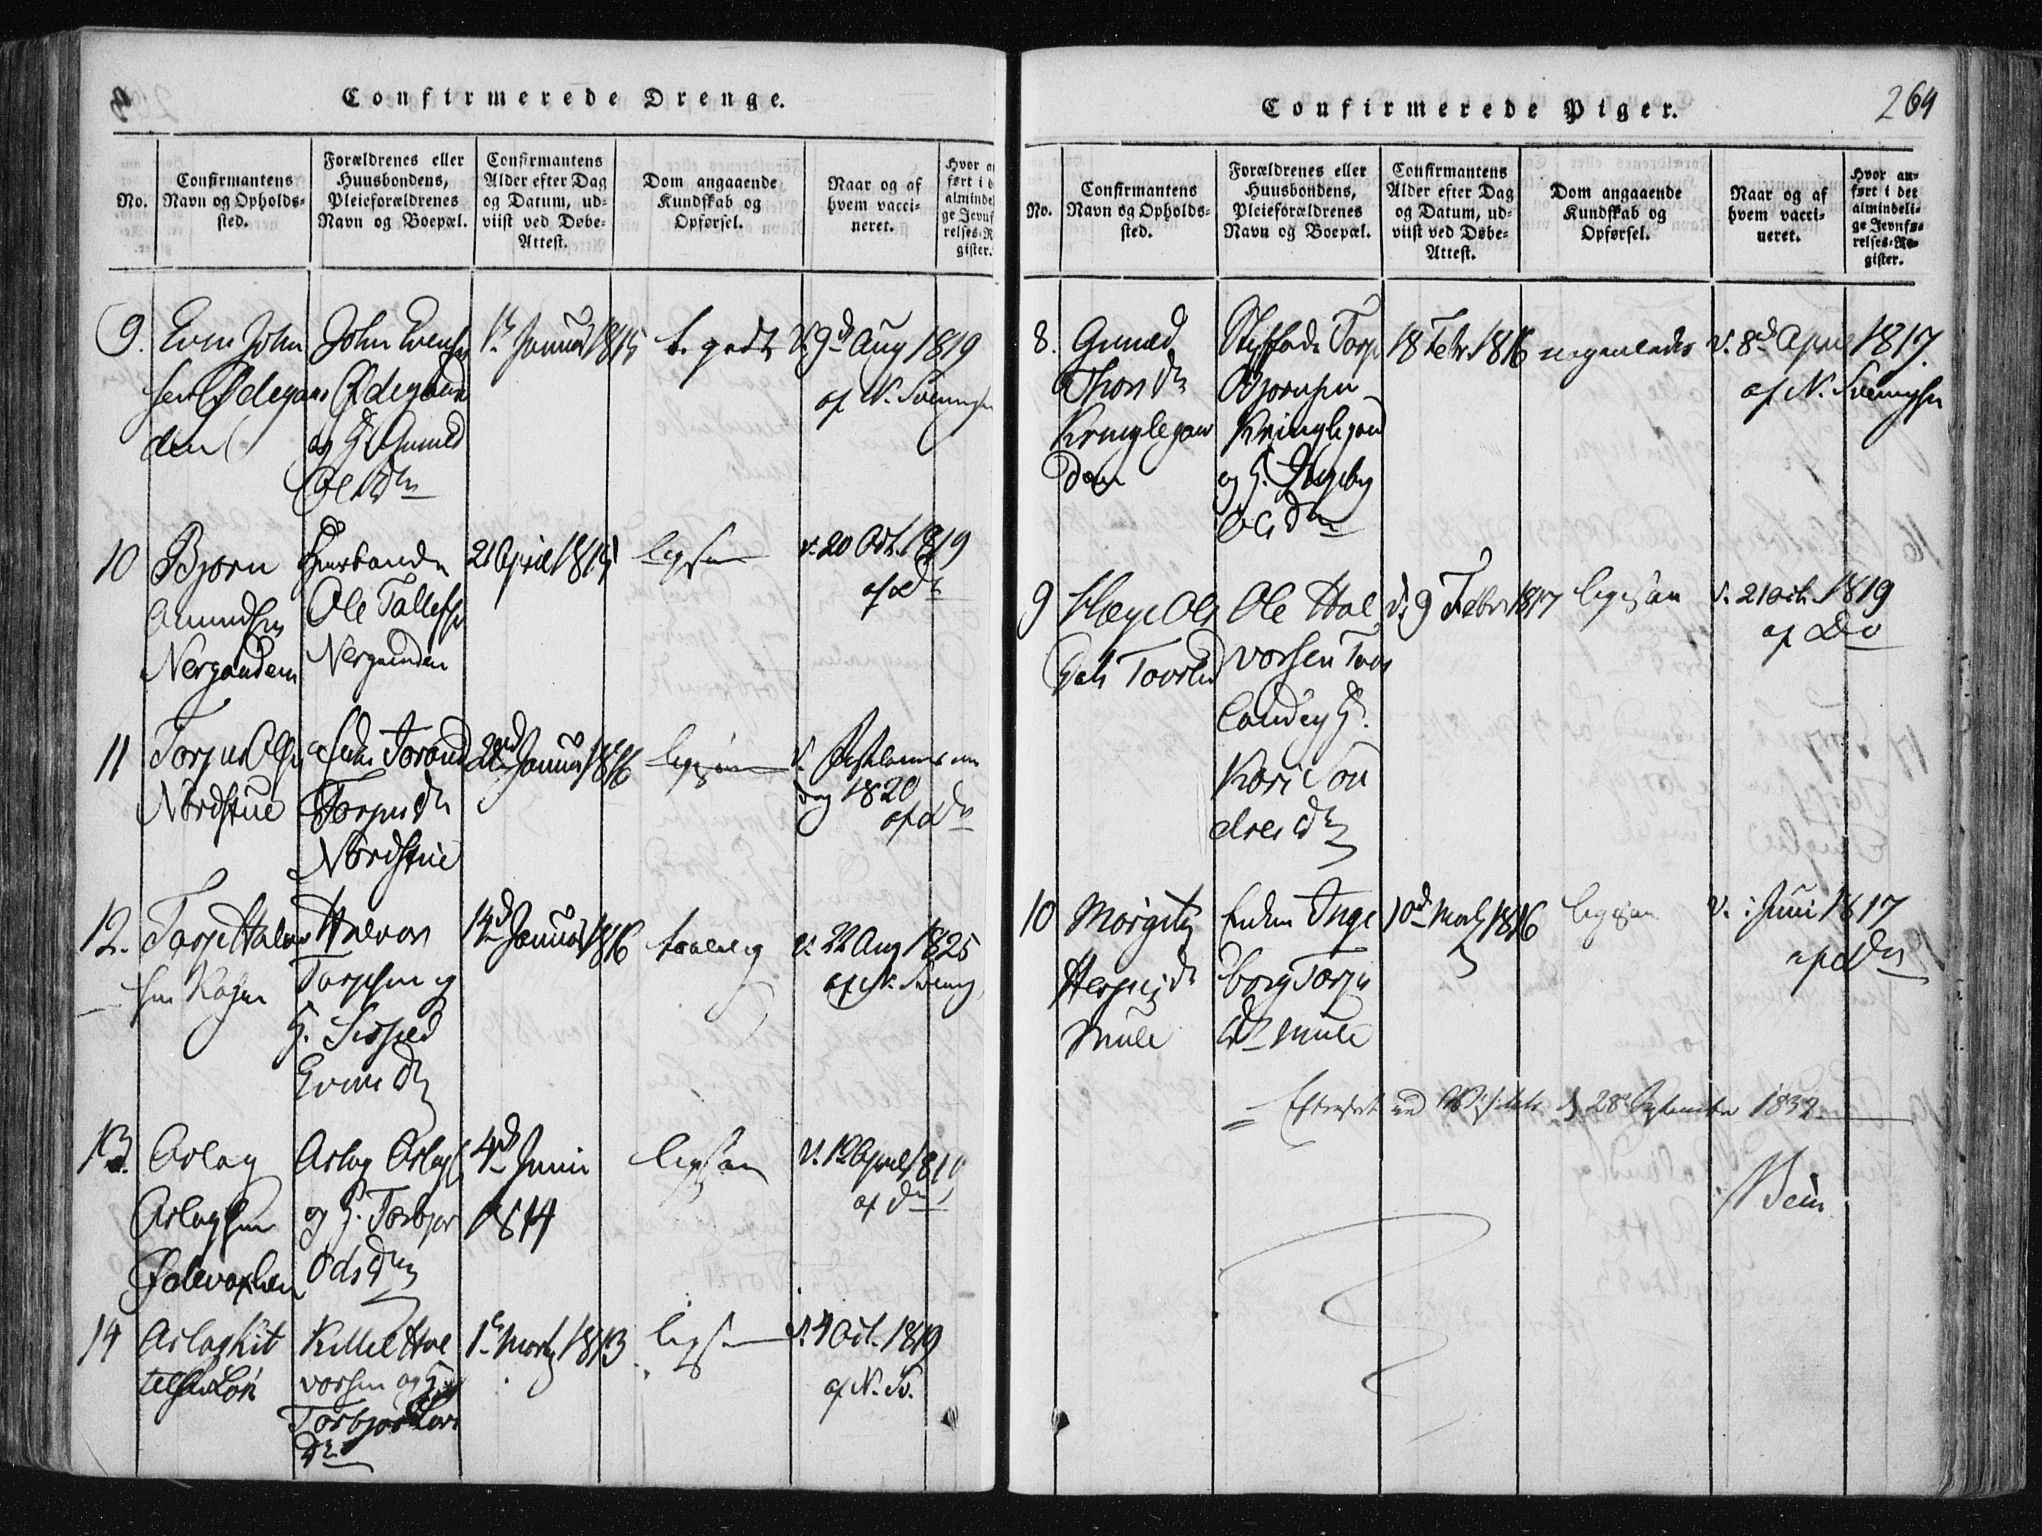 Confirmerede Drenge.
No.
Confirmantens
Navn og Opholds-
sted.
Forældrenes eller
Huusbondens,
Pleieforældrenes
Navn og Boepæl.
Confirmantens
Alder efter Dag
og Datum, ud-
viist ved Døbe-
Attest.
Dom angaaende
Kundskab og
Opførsel.
Naar og af
hvem vacci-
neret.
Hvor an
ført i d
almindel
ge Jevnf
relses-R
gister.
9.
Even John
sen Ødegaar
den
John Evensen
Ødegaard
og H. Gunild
Ols Dr
1ste Januar 1815
t. godt
V. 9de Aug 1819
af N. Svenningsen
10
Bjørn
Amundsen
Nergarden
Ole Tallefsen
Nergaarden
21 April 1815
ligesaa
v. 20 Oct. 1819
af Do
11
Torju Olsen
Nordstue
Enke Torand
Torjus Dr
Nordstue
2den Januar 1816
ligesaa
V.
dag 1820
af Do
12.
Torje Halvor
sen
Halvor
Torjesen og
H. Sissed
Evens Dr
14de Januar 1816
taalelig
v. 22 Aug 1825
af N. Svenning
13.
Aslag
Aslagsen
Aslag Aslags
og H. Torbjør
Ods Dr
4de Junii
1814
ligesaa
V. 12 April 1819
af Do
14
Aslag Kit
telsen Løn
Kittel Hal
vorsen og H.
Torbjør Lars
Dr
1ste Marts 1813
ligesaa
V. 4 Oct. 1819
af N. Sv.
Confirmerede Piger.
264
No.
Confirmantens
Navn og Opholds-
sted.
Forældrenes eller
Huusbondens,
Pleieforældrenes
Navn og Boepæl.
Confirmantens
Alder efter Dag
og Datum, ud-
viist ved Døbe-
Attest.
Dom angaaende
Kundskab og
Opførsel.
Naar og af
hvem vacci-
neret.
Hvor an-
ført i det
almindeli-
ge Jevnfø-
relses-Re-
gister.
8.
Gunild
Thors Dr
Kringlegaar
den
Stiffader Torp
Bjørnsen
Kringlegaard
og H. Ingeborg
Ols Dr
18 Febr. 1816
v. 8de April 1817.
af N. Svenningsen
9
Hæge Ols
Datr
Ole Hal
vorsen
og H.
Kari Son
dres Dr
d. 9 Febr. 1817
ligesaa
V. 21 Oct. 1819
af Do
10
Morgith
Herjus Dr
Mule
Enken Inge
borg Torju
Dr Mule
10de Marts 1816
ligesaa
V. 1 Juni 1817
af Do
Efterseet ved Visitats d. 28de September 1832.